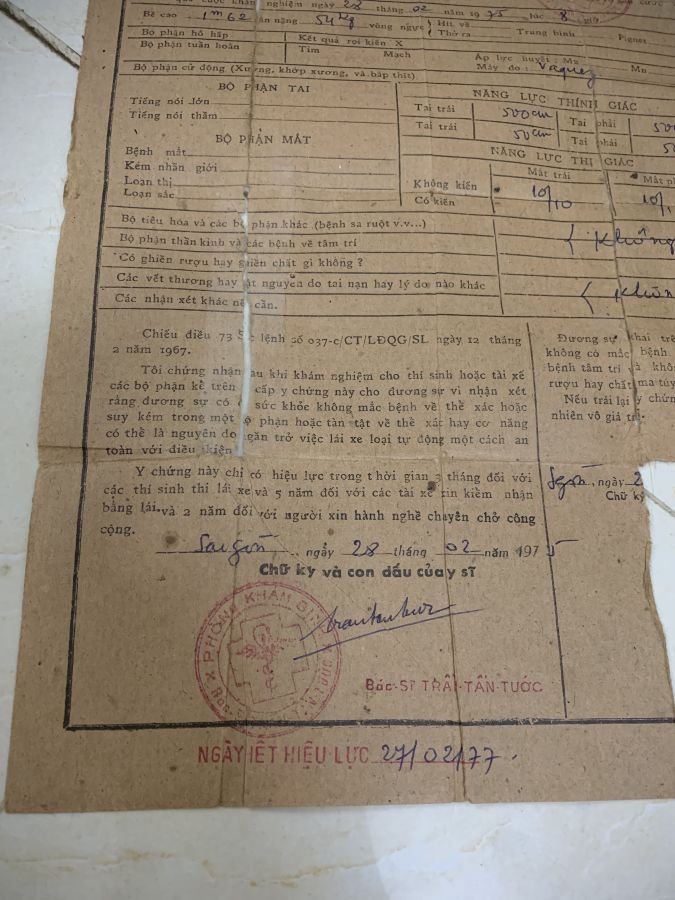 cuộc khán nghiệm ngày 28 tháng 02 năm 1975 lúc 8 giờ
Bề cao 1m62 cân nặng 54kg vòng ngực Hít vô
Thở ra Trung bình Pignet
Bộ phận hô hấp Kết quả rọi kiến X
Bộ phận tuần hoàn Tim Mạch Áp lực huyết: Mx
Máy đo: Vaquez Mn
Bộ phận cử động (Xương, khớp xương, và bắp thịt)
BỘ PHẬN TAI
Tiếng nói lớn
Tiếng nói thầm
NĂNG LỰC THÍNH GIÁC
Tai trái 500cm Tai phải
Tai trái 50cm Tai phải
BỘ PHẬN MẮT
Bệnh mắt
Kém nhãn giới
Loạn thị
Loạn sắc
NĂNG LỰC THỊ GIÁC
Mắt trái
Không kiến 10/10
Có kiến
Bộ tiêu hóa và các bộ phận khác (bệnh sa ruột v.v...)
Bộ phận thần kinh và các bệnh về tâm trí
Không
Có ghiền rượu hay ghiền chất gì không ?
Các vết thương hay tật nguyền do tai nạn hay lý do nào khác
Các nhận xét khác nếu cần.
Chiếu điều 73 Sắc lệnh số 037-c/CT/LĐQG/SL ngày 12 tháng
2 năm 1967.
Tôi chứng nhận sau khi khám nghiệm cho thí sinh hoặc tài xế
các bộ phận kể trên cấp y chứng này cho đương sự vì nhận xét
rằng đương sự có sức khỏe không mắc bệnh về thể xác hoặc
suy kém trong một bộ phận hoặc tàn tật về thể xác hay cơ năng
có thể là nguyên do ngăn trở việc lái xe loại tự động một cách an
toàn với điều kiện
Y chứng này chỉ có hiệu lực trong thời gian 3 tháng đối với
các thí sinh thi lái xe và 5 năm đối với các tài xế xin kiểm nhận
bằng lái, và 2 năm đối với người xin hành nghề chuyên chở công
cộng.
Saigon, ngày 28 tháng 02 năm 1975
Chữ ký và con dấu của y sĩ
PHÒNG KHÁM
Bác-Sĩ TRẦN-TẤN-TƯỚC
Đương sự khai trên
không có mắc bệnh
bệnh tâm trí và
rượu hay chất ma túy
Nếu khai lại y chứng
nhiên vô giá trị.
Sgon, ngày 2
Chữ ký
NGÀY HẾT HIỆU-LỰC 27/02/77.